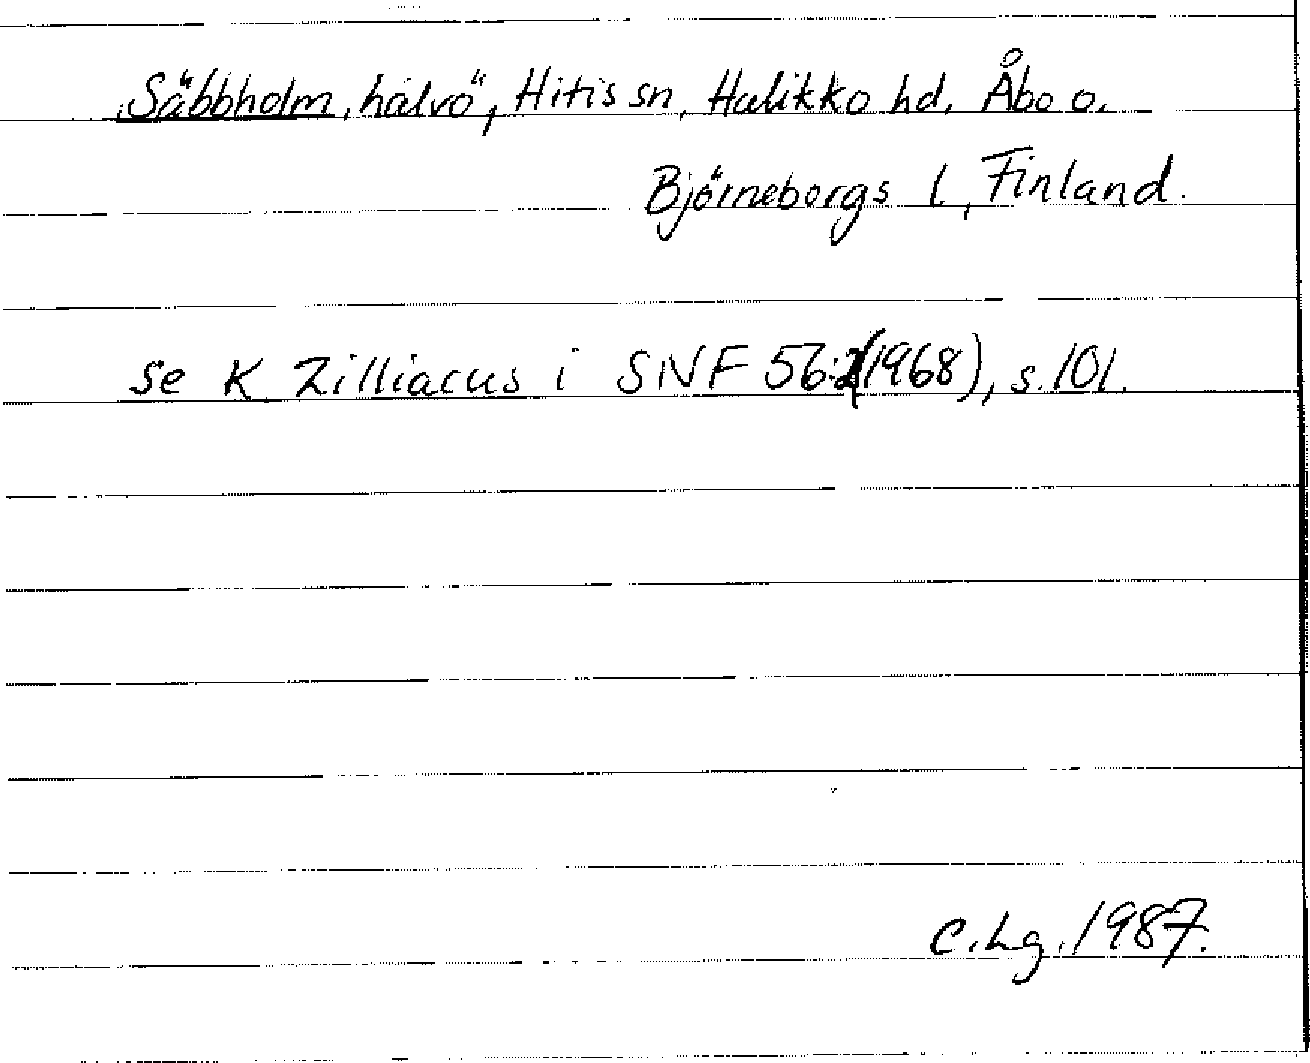 Säbbholm, halvö, Hitis sn, Halikko hd, Åbo o.
Björneborgs l, Finland.
se K Zilliacus i SNF 56: (1968), s. 101.
C. Lg. 1987.